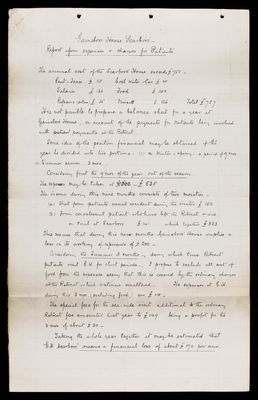 Gainsboro' House Scarboro'.
Report upon expenses & charges for Patients
The annual cost of the Scarboro' House exceeds £750.-
Rent, Taxes £ 115 Coal Water Gas £ 45
Salaries £ 130 Food £ 283
Repairs (alms) £ 25 Drivell £ 156 Total £757
It is not possible to prepare a balance sheet for a year at
Gainsboro' House, on account of the payments for Patients being involved
with patients' payments at the Retreat
Some idea of the position financial may be obtained if the
year be divided into two portions: - (1) a Winter & spring, a period of 9 mos
Summer season 3 mos -
Considering first the 9 mos of the year out of the season
The expenses may be taken at £ 525
The income during this nine months consists of two moieties.
(a) That from patients would resident during the winter £ 183
(b) From convalescent patients who have left the Retreat & are
on trial at Scarboro' which together £ 323
This means that during this nine months Gainsboro' House implies a
loss in its working expenses of £ 200 -
Considering the Summer 3 months, during which time Retreat
patients visit G.H. for short periods. I propose to exclude all cost of
food from the expenses seeing that this is covered by the ordinary charges
at the Retreat which continue unaltered. The expenses at G.H
during this 3 mos (excluding food) are £
The special fees for the sea-side visit additional to the ordinary
Retreat fees amounted last year to being a profit for the
3 mos of about £ 30 -
Taking the whole year together it may be estimated that
G.H. Scarboro' means a financial loss of about £170 per ann.